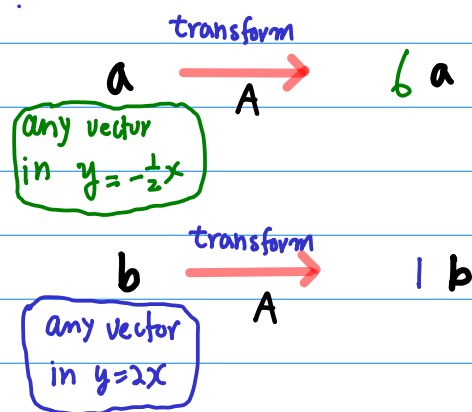 transform
a 6 a
A
any vector
in y = -1/2 x
transform
b 1 b
A
any vector
in y=2x